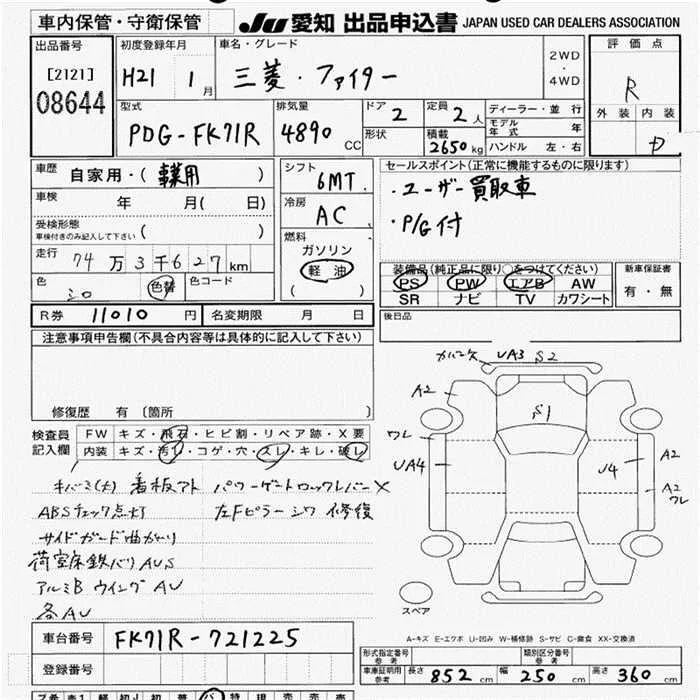 車内保管・守衛保管
JU 愛知 出品申込書 JAPAN USED CAR DEALERS ASSOCIATION
出品番号
[2121]
08644
初度登録年月
H21 1月
車名・グレード
三菱・ファイター
2WD
・
4WD
評価点
R
外装 内装
D
型式
PDG-FK71R
排気量
4890 CC
ドア 2
形状
定員 2人
積載 2650kg
ディーラー・並行
モデル年式 年
ハンドル 左・右
車歴
自家用・(事業用)
車検 年 月( 日)
受検形態
車検付きのみ記入して下さい ( )
走行 74万3千627km
色 シロ 色替 色コード
シフト
6MT
冷房
AC
燃料
ガソリン
軽油
( )
セールスポイント(正常に機能するものに限ります)
・ユーザー買取車
・P/G付
装備品(純正品に限り○をつけてください)
PS PW エアB AW
SR ナビ TV カワシート
新車保証書
有・無
R券 11010円
名変期限 月 日
後日品
注意事項申告欄(不具合内容等は具体的に記入して下さい)
修復歴 有 〔箇所 〕
検査員記入欄
FW キズ・飛石・ヒビ割・リペア跡・X要
内装 キズ・汚レ・コゲ・穴・スレ・キレ・破レ
キバミ(大) 看板アト パワーゲートロックレバーX
ABSチェック点灯 左Fピラーシワ 修復
サイドガード曲がり
荷室床鉄バリAUS
アルミB ウイング AU
各AU
UA3 S2
A2
S1
ワレ
UA4
U4
A2
A2
ワレ
スペア
A-キズ E-エクボ U-凹み W-補修跡 S-サビ C-腐食 XX-交換済
車台番号 FK71R-721225
登録番号
形式指定番号
参考
類別区分番号
参考
車庫証明用
参考
長さ 852cm 幅 250cm 高さ 360cm